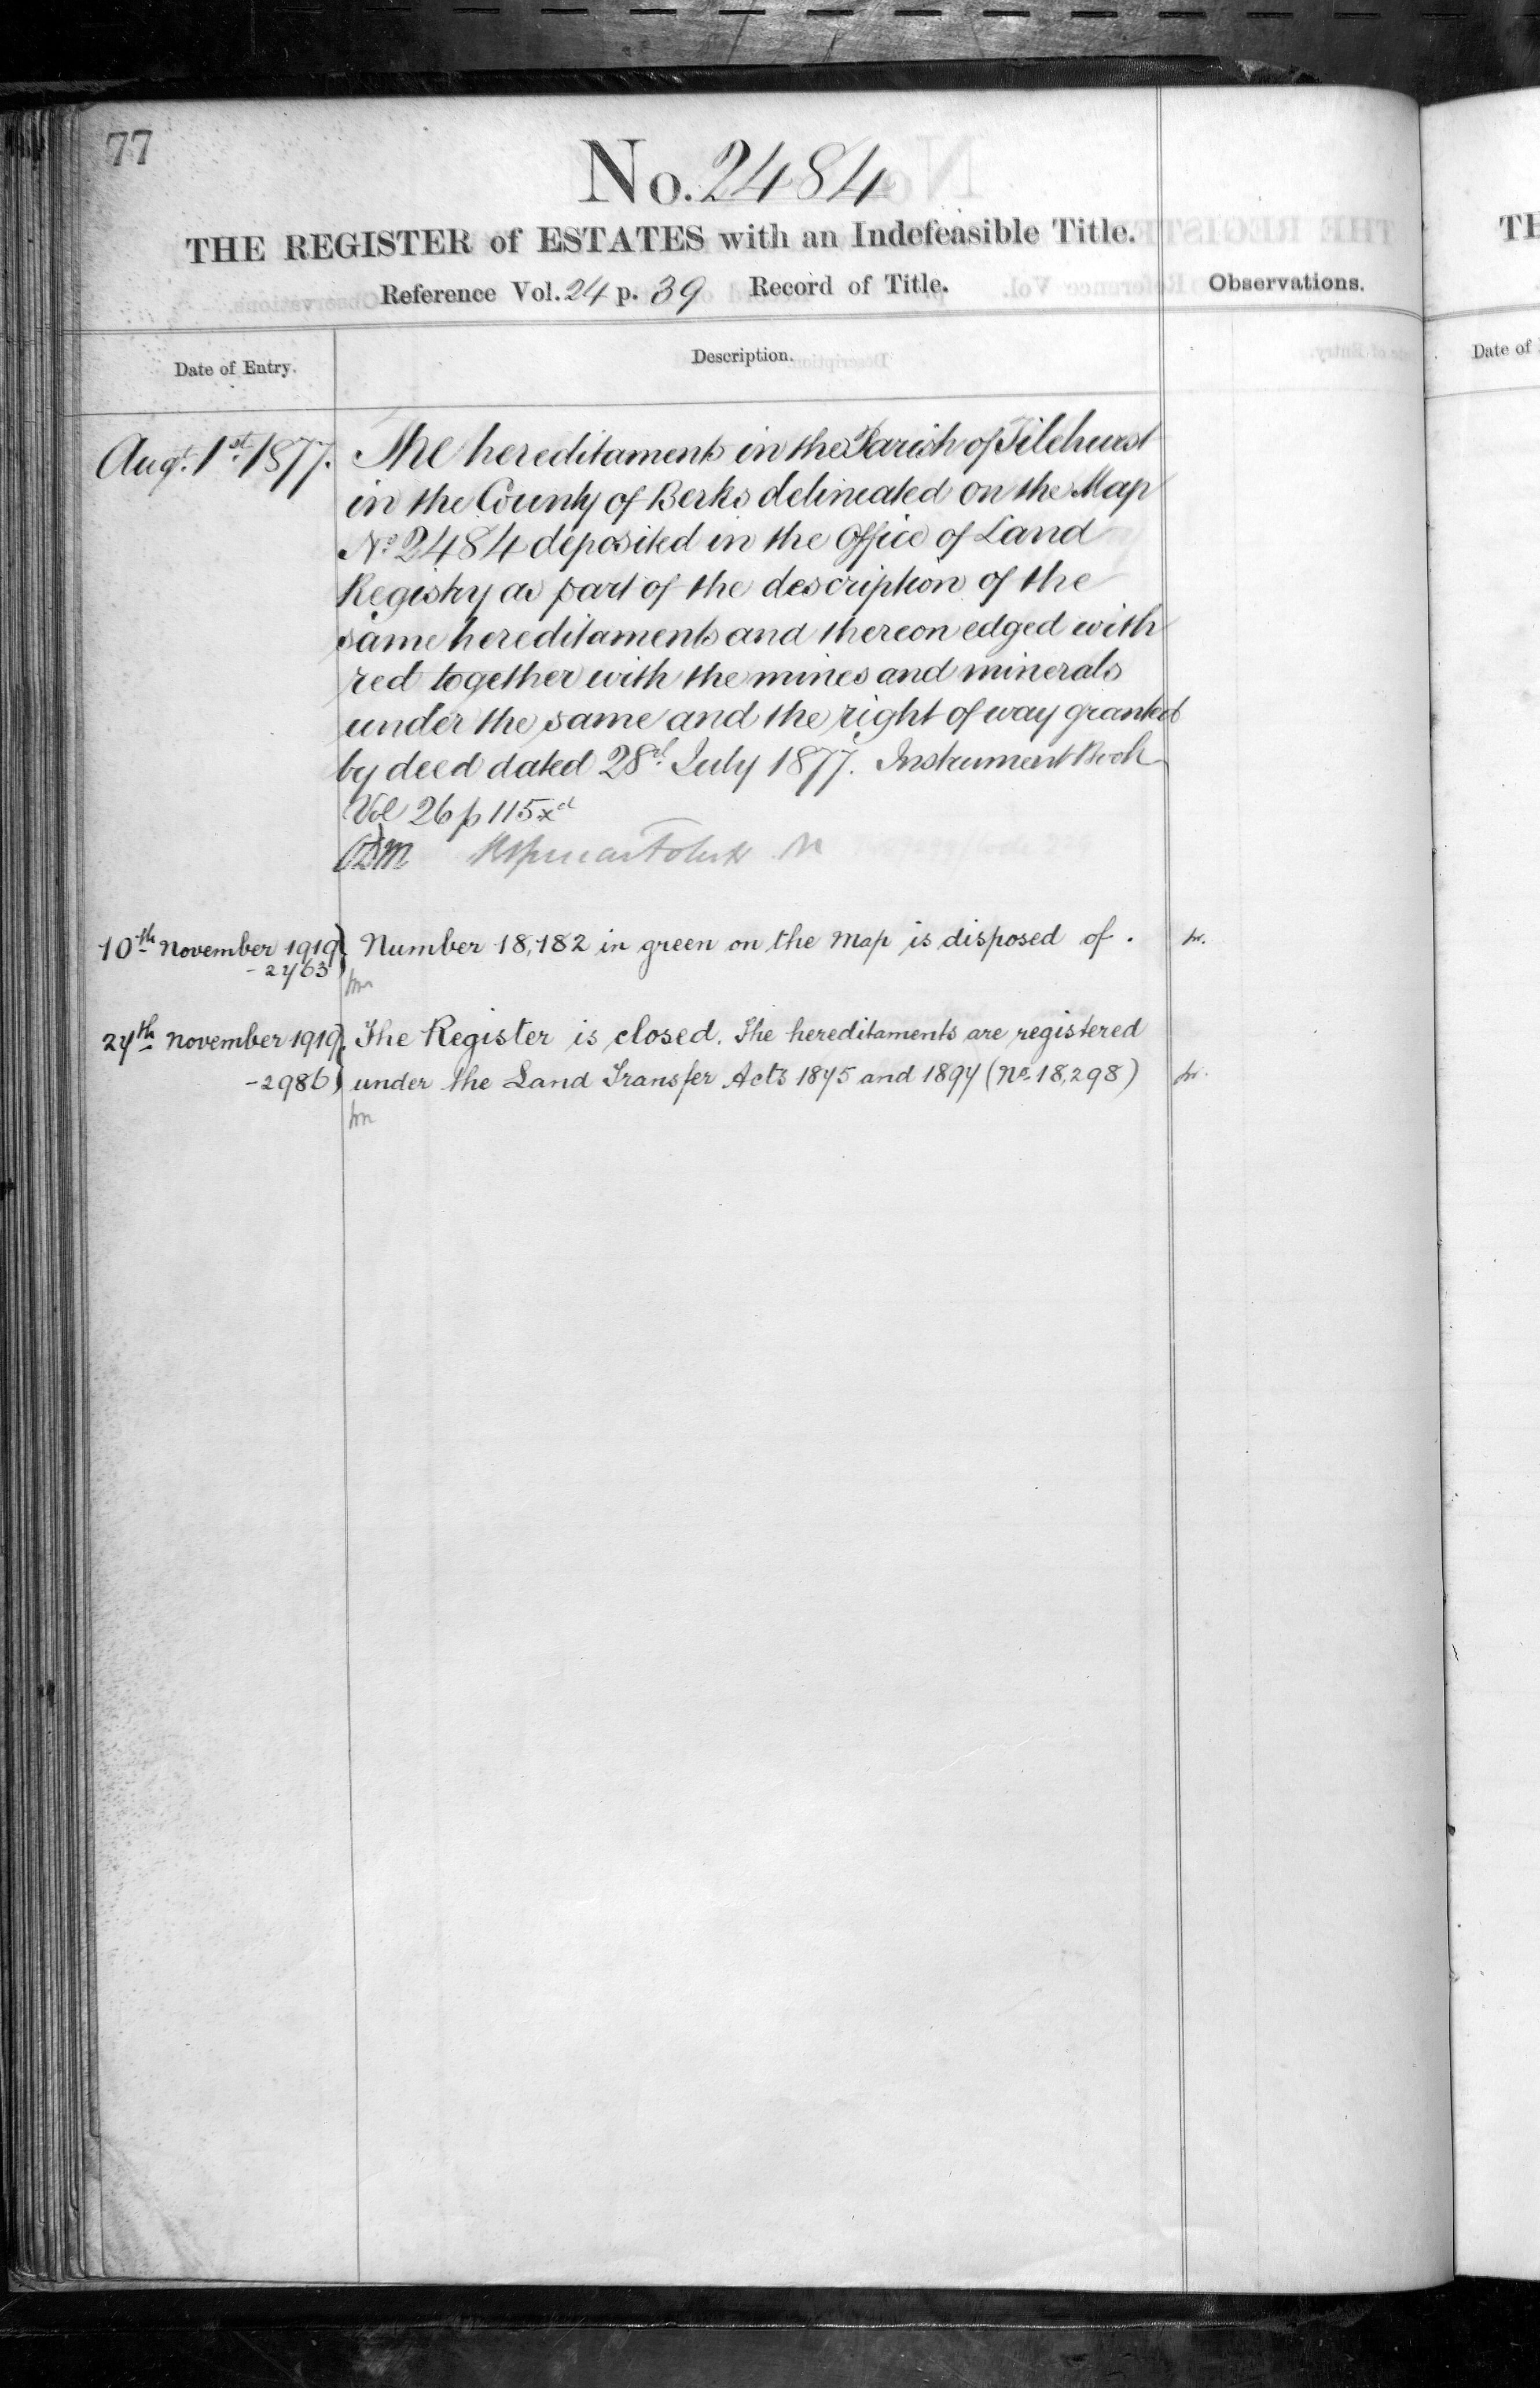 77
No. 2484
THE REGISTER of ESTATES with an Indefeasible Title.
Reference Vol. 24 p. 39 Record of Title.
Observations.
Date of Entry.
Description.
Augt. 1st 1877. The hereditaments in the Parish of Tilehurst
in the County of Berks delineated on the Map
No 2484 deposited in the Office of Land
Registry as part of the description of the
same hereditaments and thereon edged with
red together with the mines and minerals
under the same and the right of way granted
by deed dated 28th July 1877. Instrument Book
Vol 26 p 115
10th November 1919 Number 18,182 in green on the Map is disposed of.
24th November 1919. The Register is closed. The hereditaments are registered
-2986 under the Land Transfer Acts 1875 and 1897 (No. 18,298)
TH
Date of